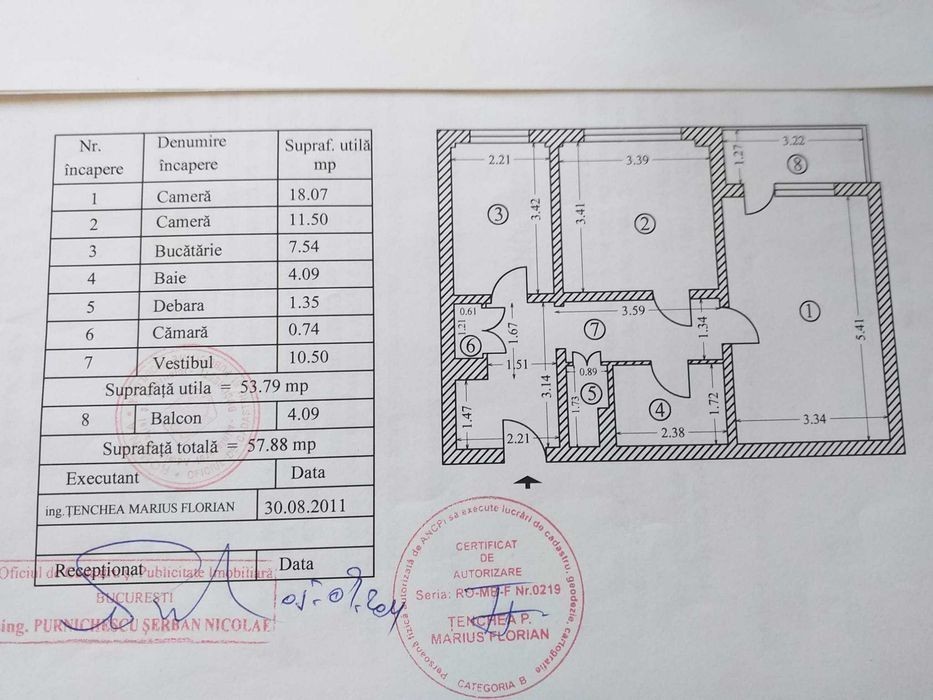 Nr. încapere Denumire încapere Supraf. utilă mp
1 Cameră 18.07
2 Cameră 11.50
3 Bucătărie 7.54
4 Baie 4.09
5 Debara 1.35
6 Cămară 0.74
7 Vestibul 10.50
Suprafață utila = 53.79 mp
8 Balcon 4.09
Suprafață totală = 57.88 mp
Executant Data
ing.ȚENCHEA MARIUS FLORIAN 30.08.2011
Recepționat Data
Oficiul de Publicitate Imobiliară
BUCUREȘTI
ing. PURNICHESCU ȘERBAN NICOLAE
2.21
3.39
3.22
1.27
8
3
3.42
3.41
2
1
5.41
3.34
0.61
1.21
6
1.67
1.51
7
3.59
1.34
3.14
0.89
5
1.73
4
1.72
2.38
1.47
2.21
Persoană fizică autorizată de ANCPI să execute lucrări de cadastru, geodezie, cartografie
CERTIFICAT
DE
AUTORIZARE
Seria: RO-MB-F Nr.0219
ȚENCHEA P.
MARIUS FLORIAN
CATEGORIA B